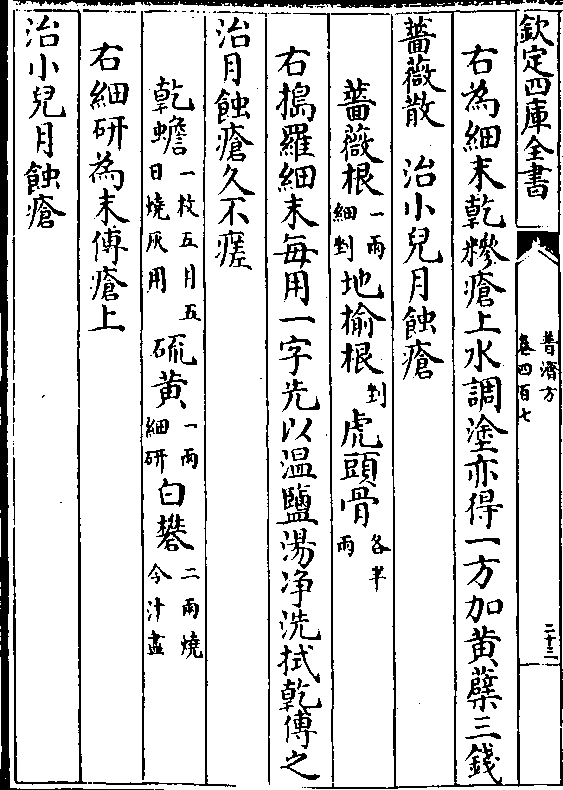 欽定四庫全書
普濟方
卷四百七
二十三
右為細末乾糝瘡上水調塗亦得一方加黄蘗三錢
薔薇散 治小兒月蝕瘡
薔薇根一兩細剉地榆根剉虎頭骨各半兩
右搗羅細末每用一字先以温鹽湯净洗拭乾傅之
治月蝕瘡久不瘥
乾蟾一枚五月五日燒灰用硫黄一兩細研白礬二兩燒令汁盡
右細研為末傅瘡上
治小兒月蝕瘡